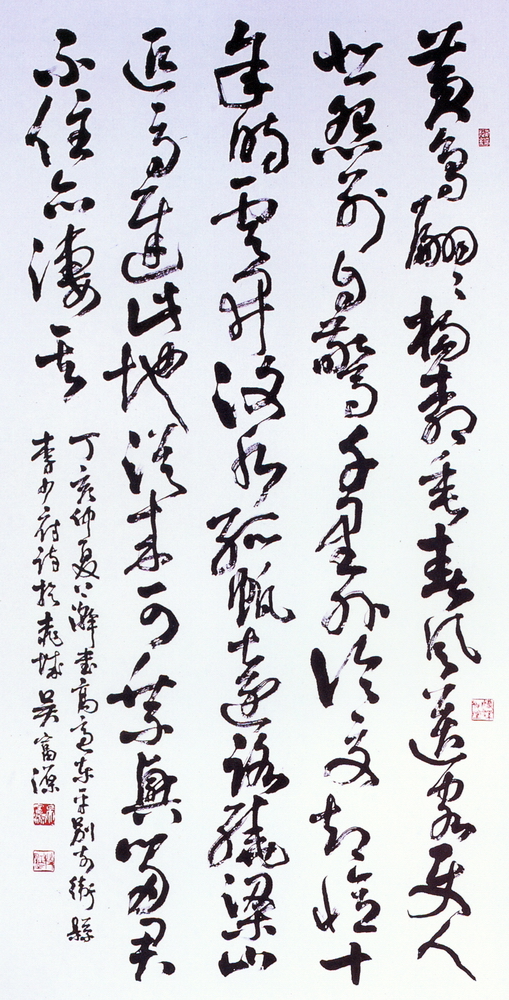 黃鳥翩〻楊柳垂春風送客使人
悲怨別自驚千里外論交卻憶十
年時雲開汶水孤帆遠路繞梁山
匹馬遲此地從來可乘興留君
不住益淒其
丁亥仲夏上澣書高適東平別前衛縣
李少府詩於桃城 吳富源